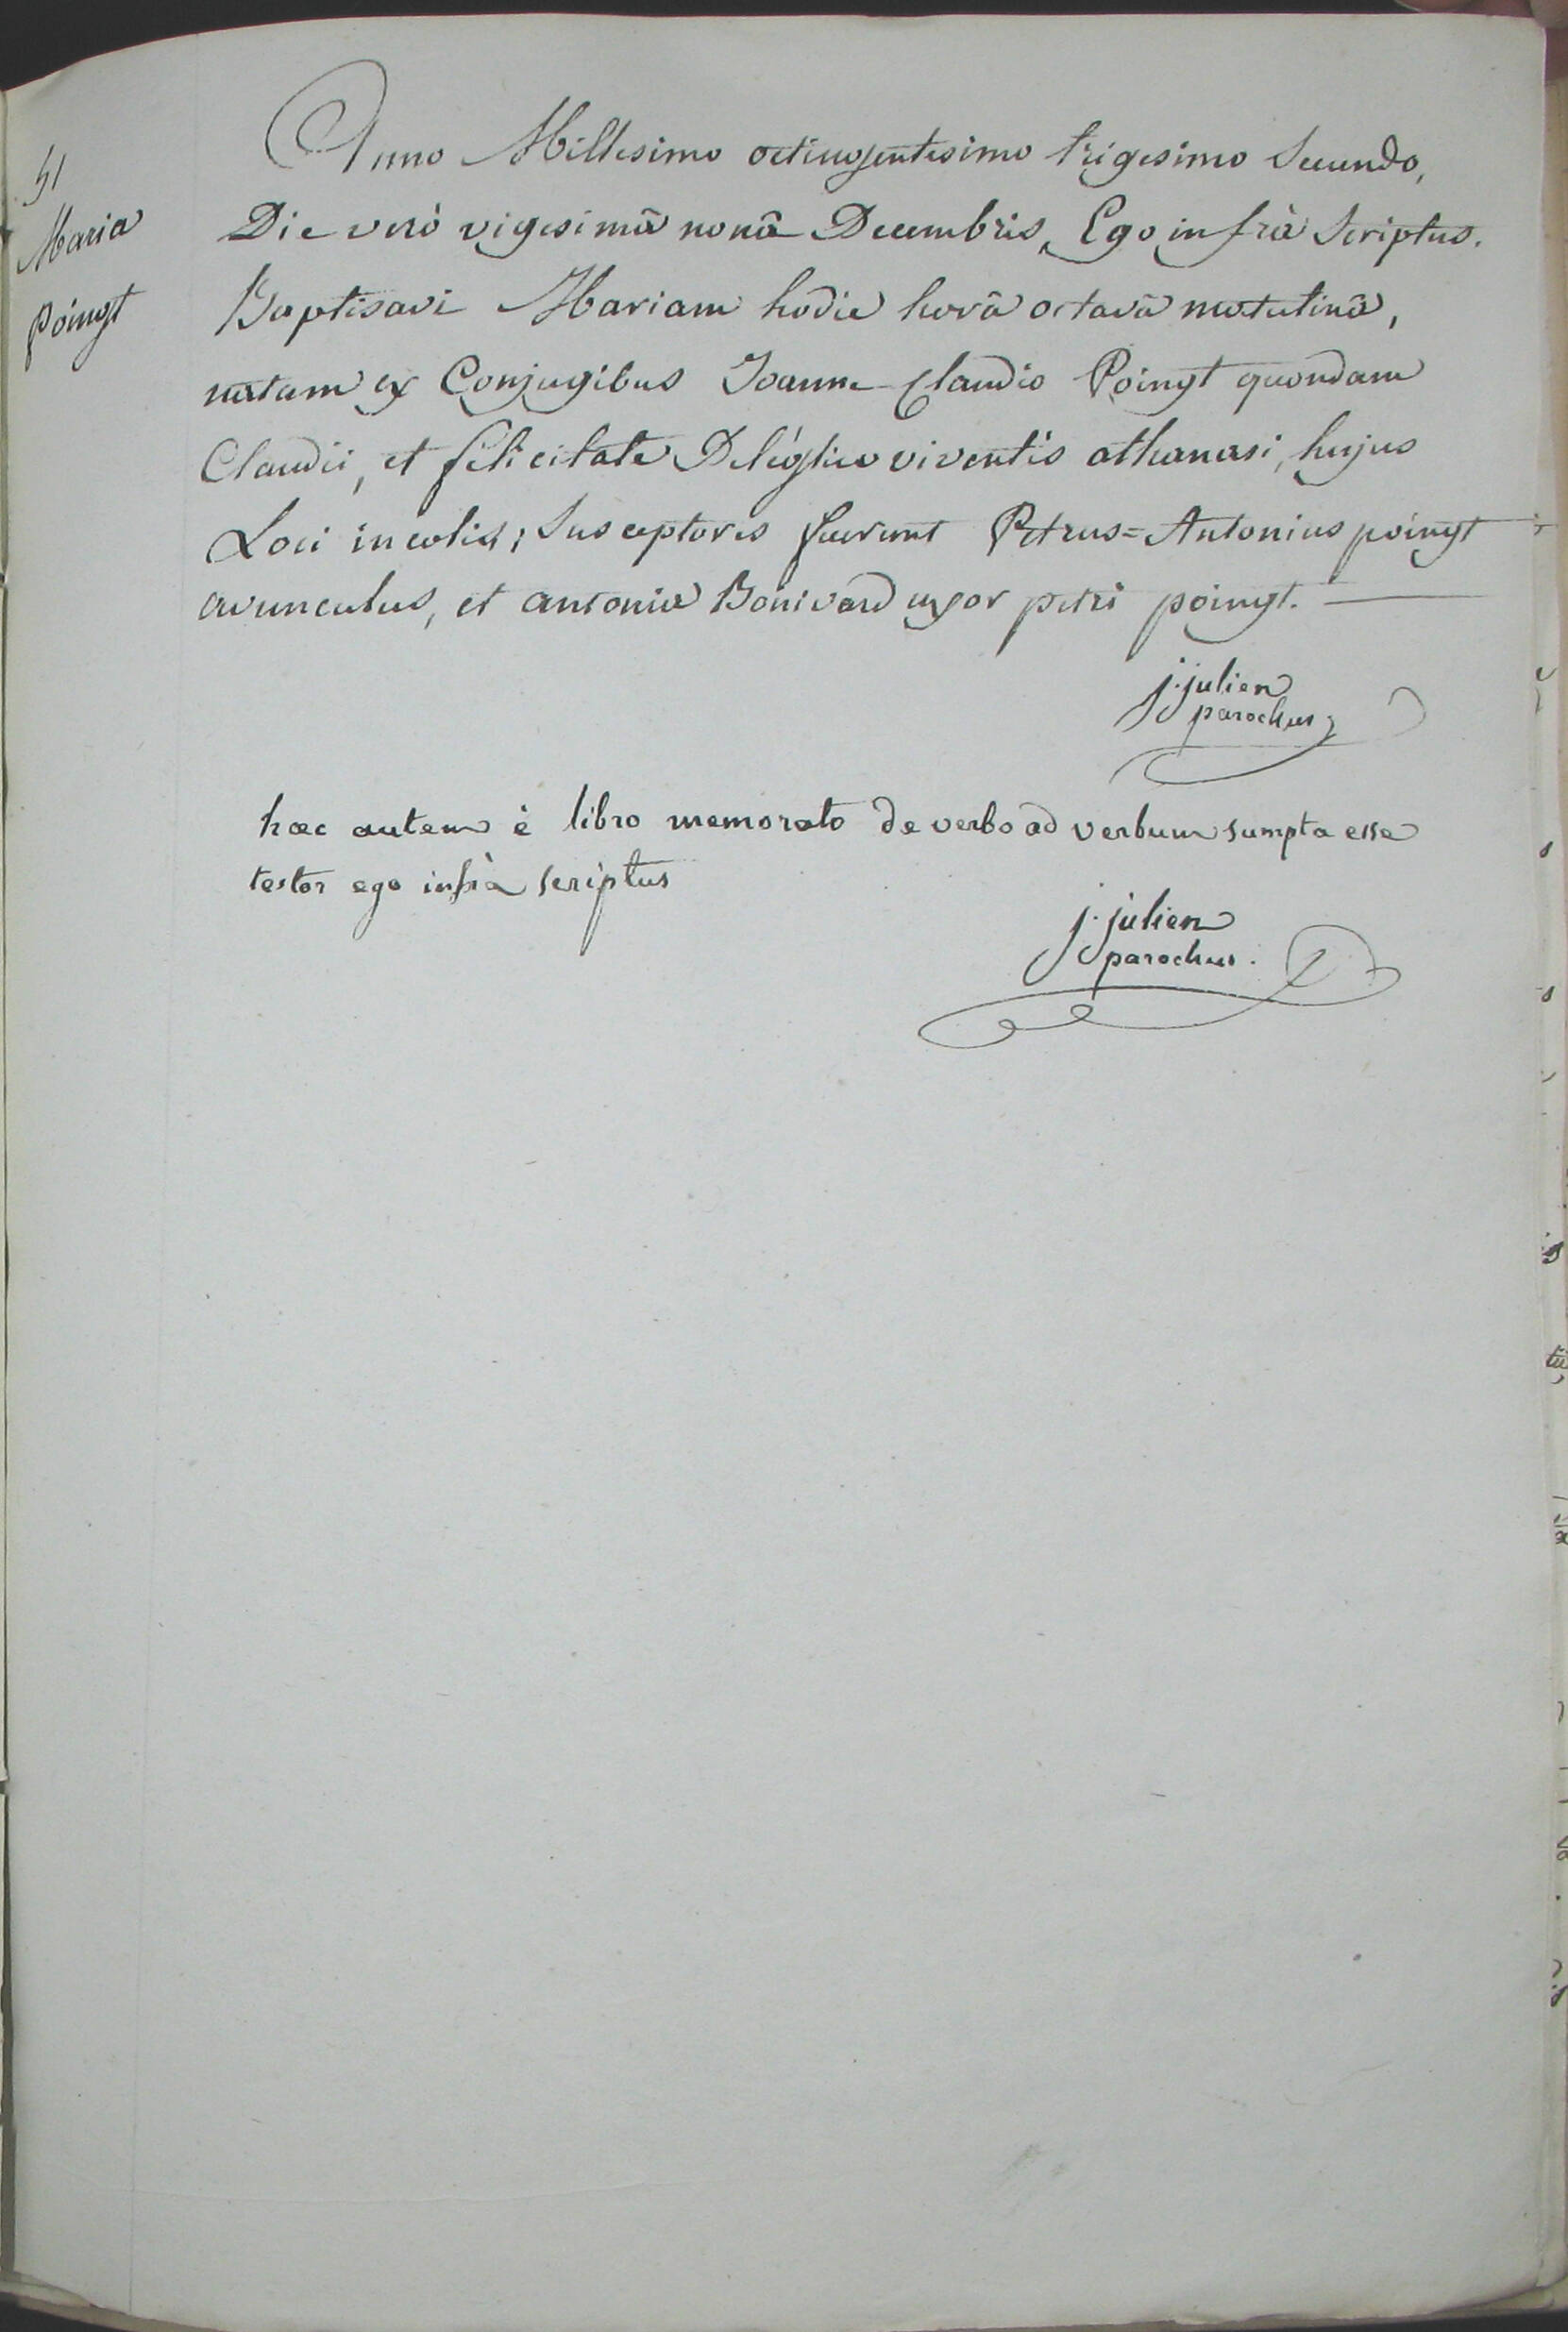 51
Maria
poingt
Anno Millesimo octingentesimo trigesimo Secundo,
Die verò vigesimâ nonâ Decembris, Ego infrà Scriptus.
Baptisavi Mariam hodie horâ octavâ matutinâ,
natam ex Conjugibus Joanne-Claudio Poingt quondam
Claudii, et felicitate viventis athanasi, hujus
Loci incolis; Susceptores fuerunt Petrus=Antonius poingt
avunculus, et antonia Bonivard uxor petri poingt. —
j. julien
parochus
hæc autem è libro memorato de verbo ad verbum sumpta esse
testor ego infrà scriptus
j. julien
parochus.